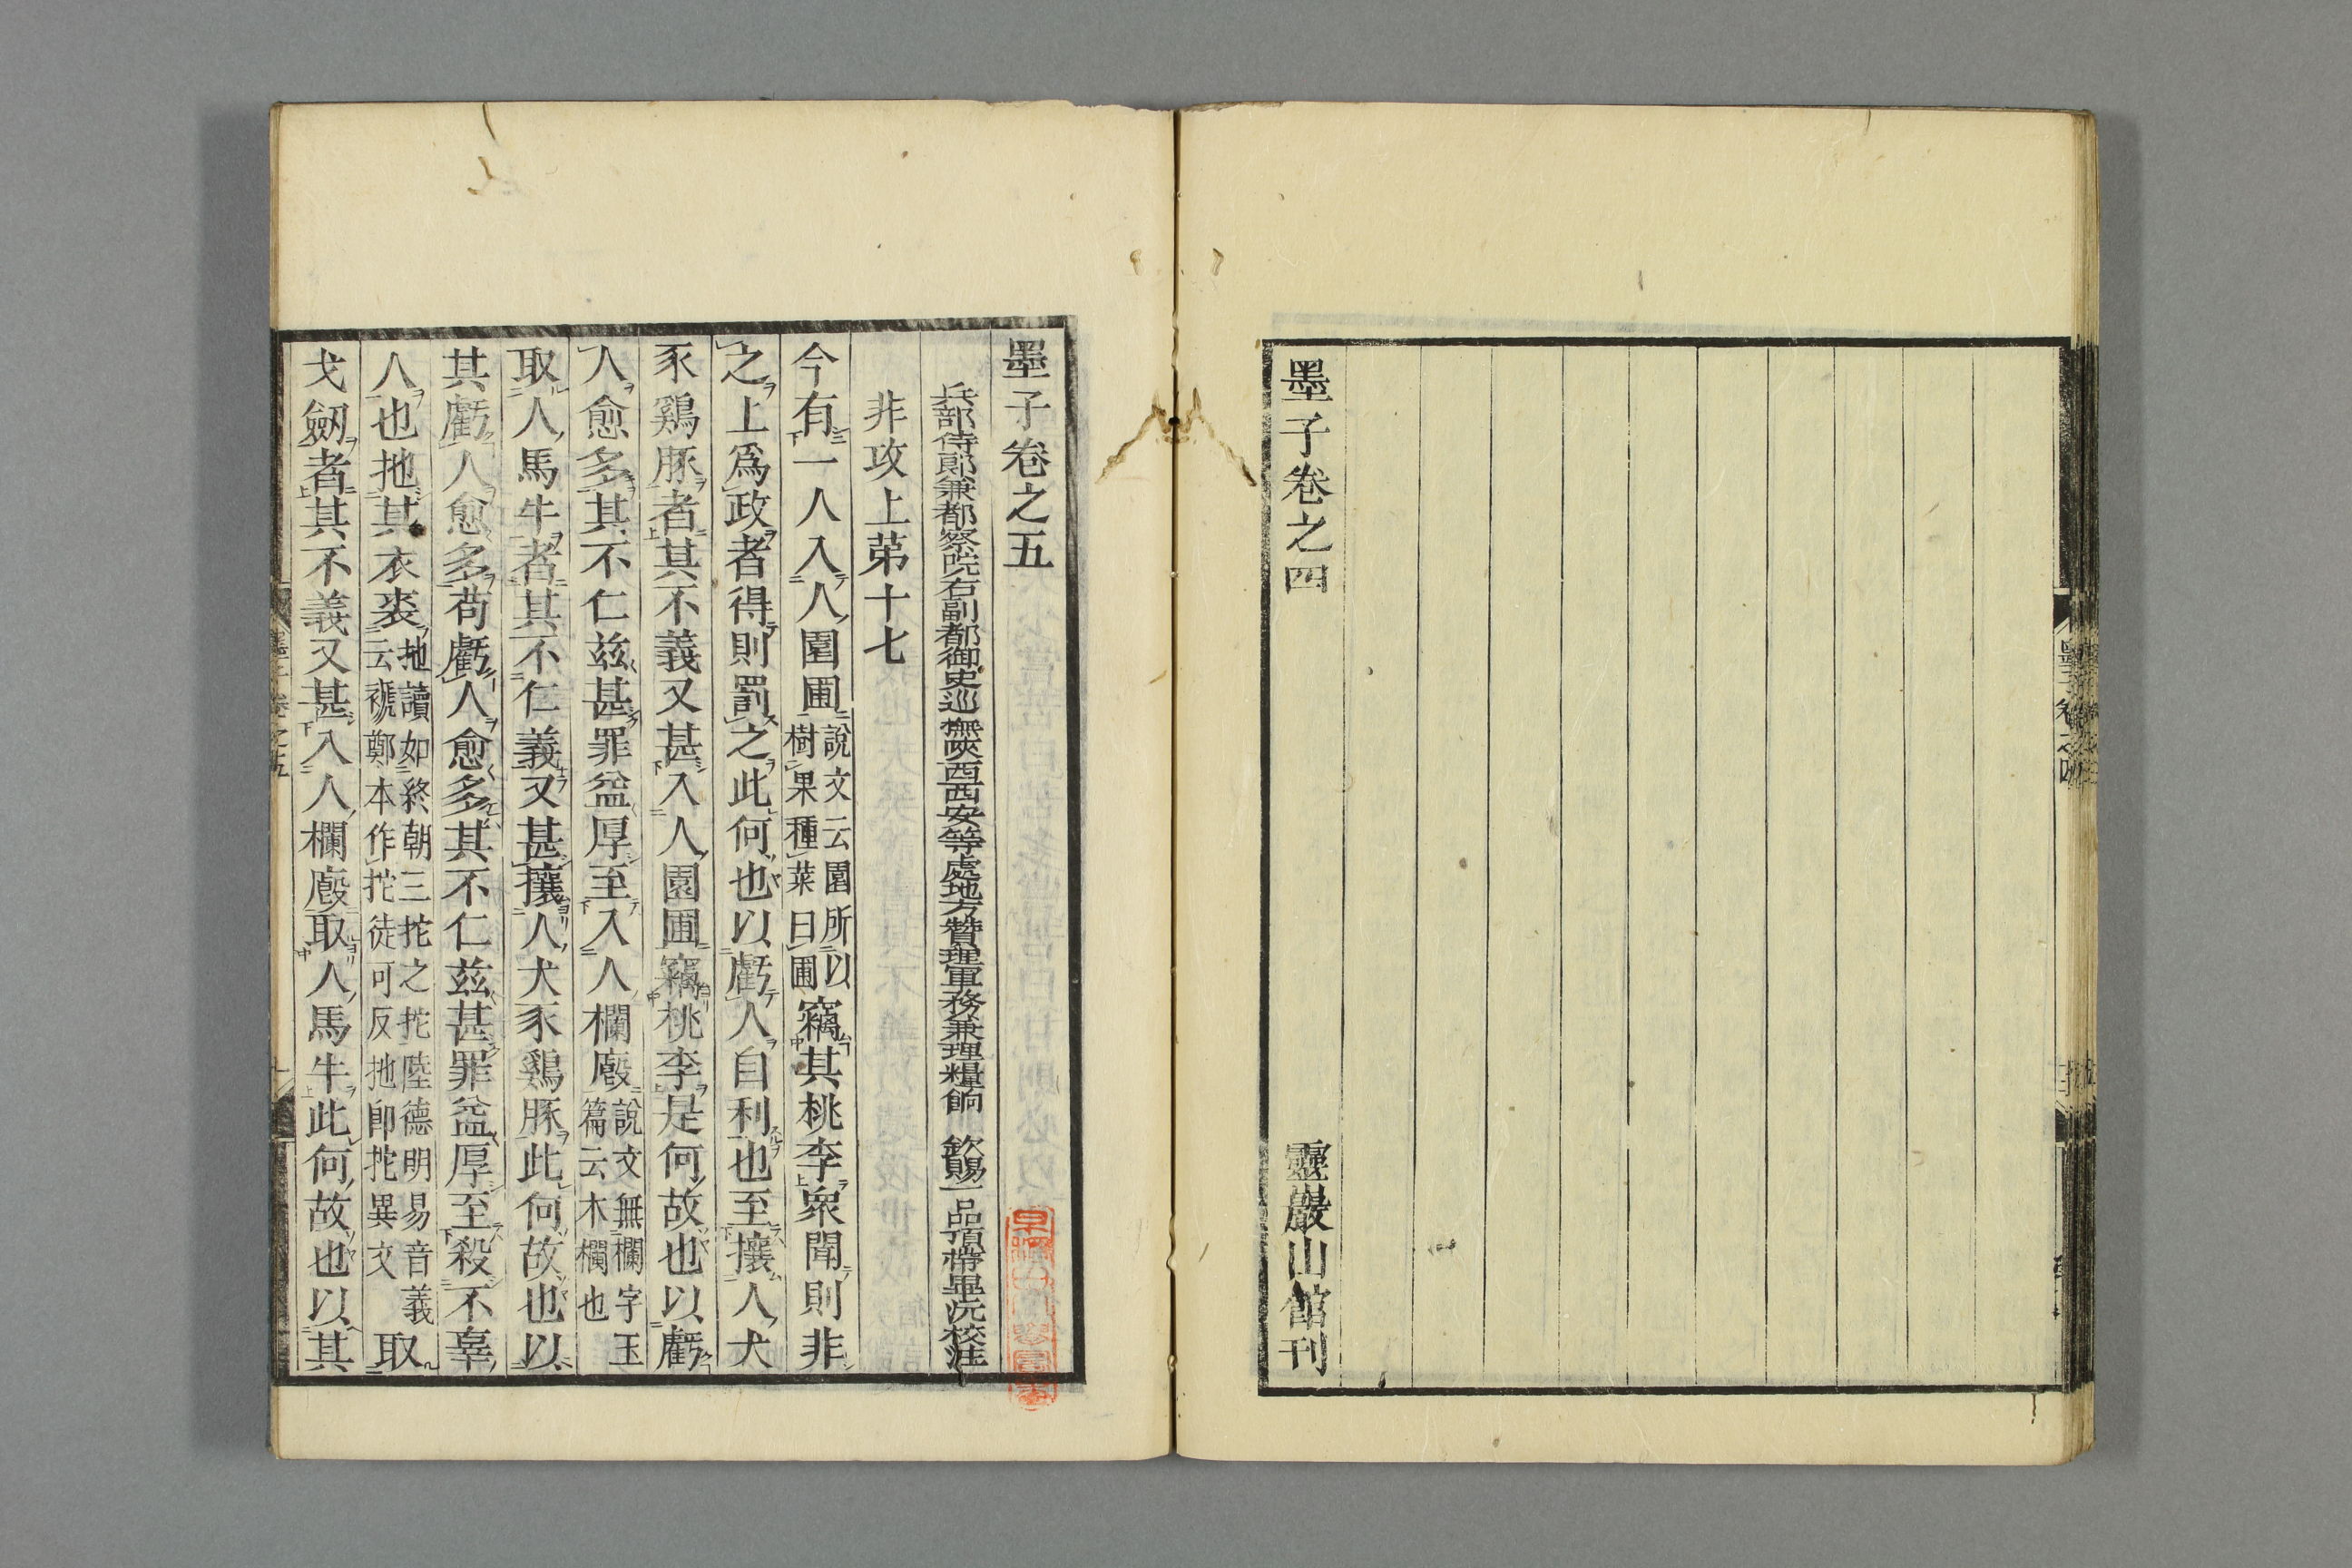 墨子卷之四
靈巖山館刊
墨子卷之五
兵部侍郎兼都察院右副都御史巡撫陝西西安等處地方贊理軍務兼理糧餉 欽賜一品頂帶畢沅校注
非攻上苐十七
今有一人入人園圃說文云園所以樹果種菜曰圃竊其桃李衆聞則非
之上爲政者得則罰之此何也以虧人自利也至攘人犬
豕鷄豚者其不義又甚入人園圃竊桃李是何故也以虧
人愈多其不仁兹甚罪益厚至入人欄廏說文無欄字玉篇云木欄也
取人馬牛者其不仁義又甚攘人犬豕鷄豚此何故也以
其虧人愈多苟虧人愈多其不仁兹甚罪益厚至殺不辜
人也扡其衣裘扡讀如終朝三拕之拕陸德明易音義云褫鄭本作拕徒可反扡卽拕異文取
戈劔者其不義又甚入人欄廏取人馬牛此何故也以其